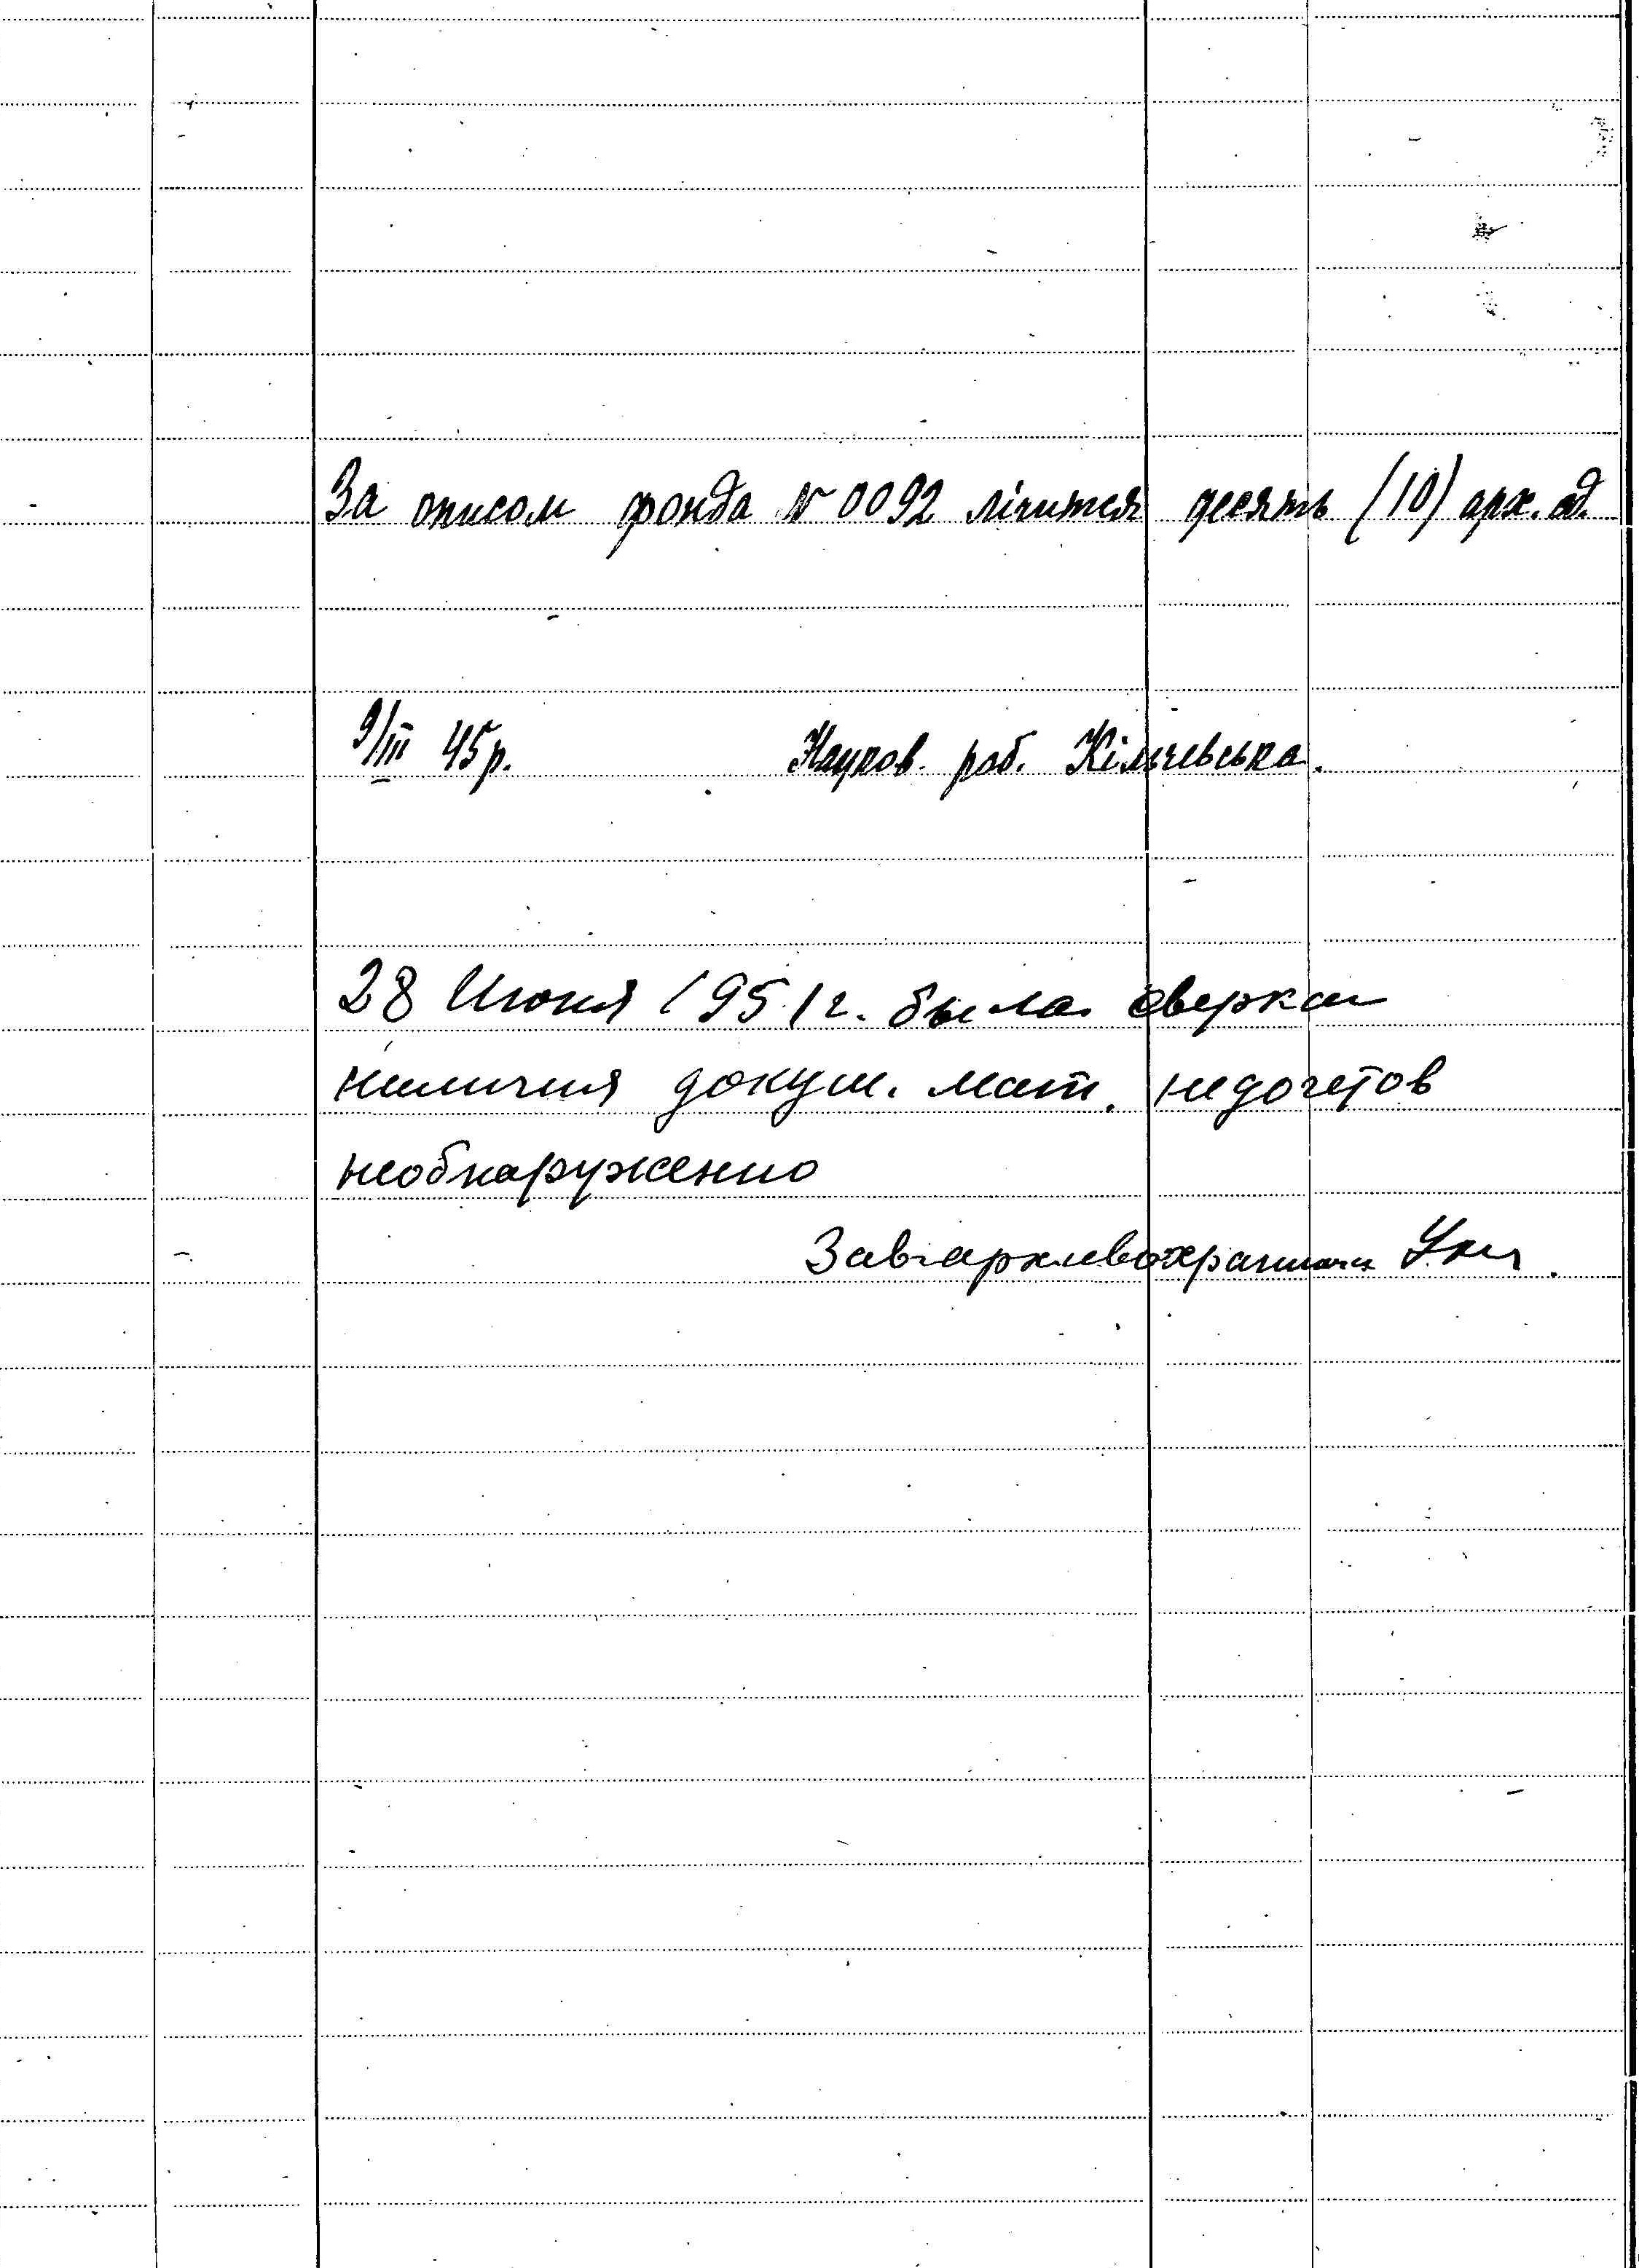 За описом фонда № 0092 лічится десять (10) арх. од.
9/III 45 р. Науков. роб. Кільчевська.
28 Июня 1951 г. была сверка
наличия докум. мат. недочетов
необнаруженно